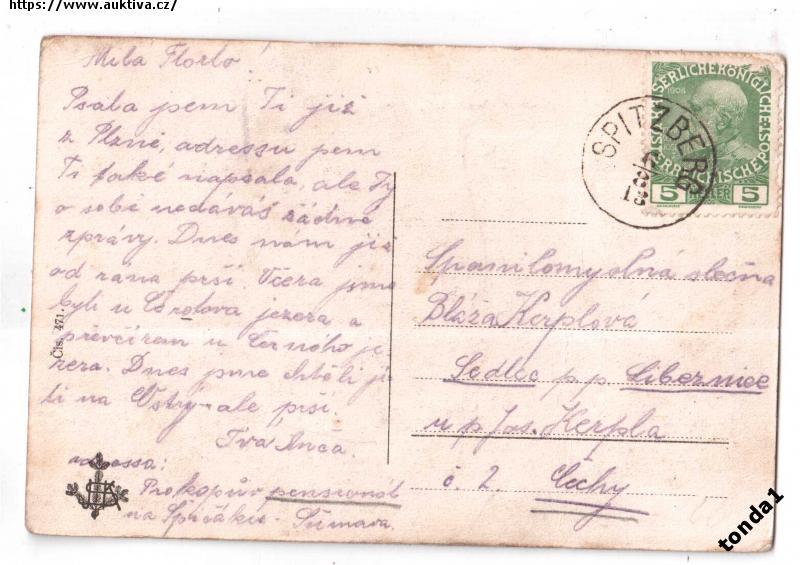 https://www.auktiva.cz/
Milá Florlo!
Psala jsem Ti již
z Plzně, adressu jsem
Ti také napsala, ale Ty
o sobě nedáváš žádné
zprávy. Dnes nám již
od rana prší. Včera jsme
byli u Čertova jezera a
převčírem u Černého je-
zera. Dnes jsme chtěli jí-
ti na Ostrý - ale prší.
Tvá Anca.
adressa:
Prokopův pensionát
na Špičáku - Šumava.
Čís. 471.
1908
KAISERLICHE KÖNIGLICHE
ÖSTERREICHISCHE POST
5 HELLER 5
SPITZBERG
13
Spanilomyslná slečna
Bláža Kerplová
Sedlec p.p. Libeznice
u p. Jos. Kerpla
č. 2. Čechy
tonda1